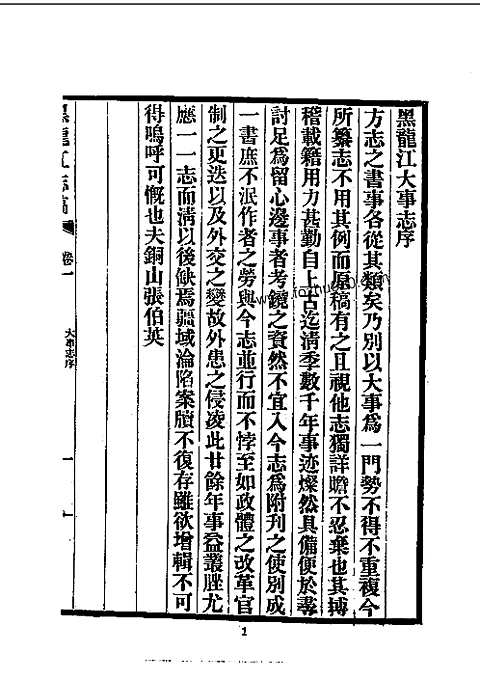 黑龍江大事志序
方志之書事各從其類矣乃別以大事爲一門勢不得不重複今
所纂志不用其例而原稿有之且視他志獨詳贍不忍棄也其搏
稽載籍用力甚勤自上古迄清季數千年事迹燦然具備便於尋
討足爲留心邊事者考鏡之資然不宜入今志爲附刊之使別成
一書庶不泯作者之勞與今志並行而不悖至如政體之改革官
制之更迭以及外交之變故外患之侵凌此廿餘年事益叢脞尤
應一一志而清以後缺焉疆域淪陷案牘不復存雖欲增輯不可
得嗚呼可慨也夫銅山張伯英
黑龍江志稿
卷一
大事志序
一
1